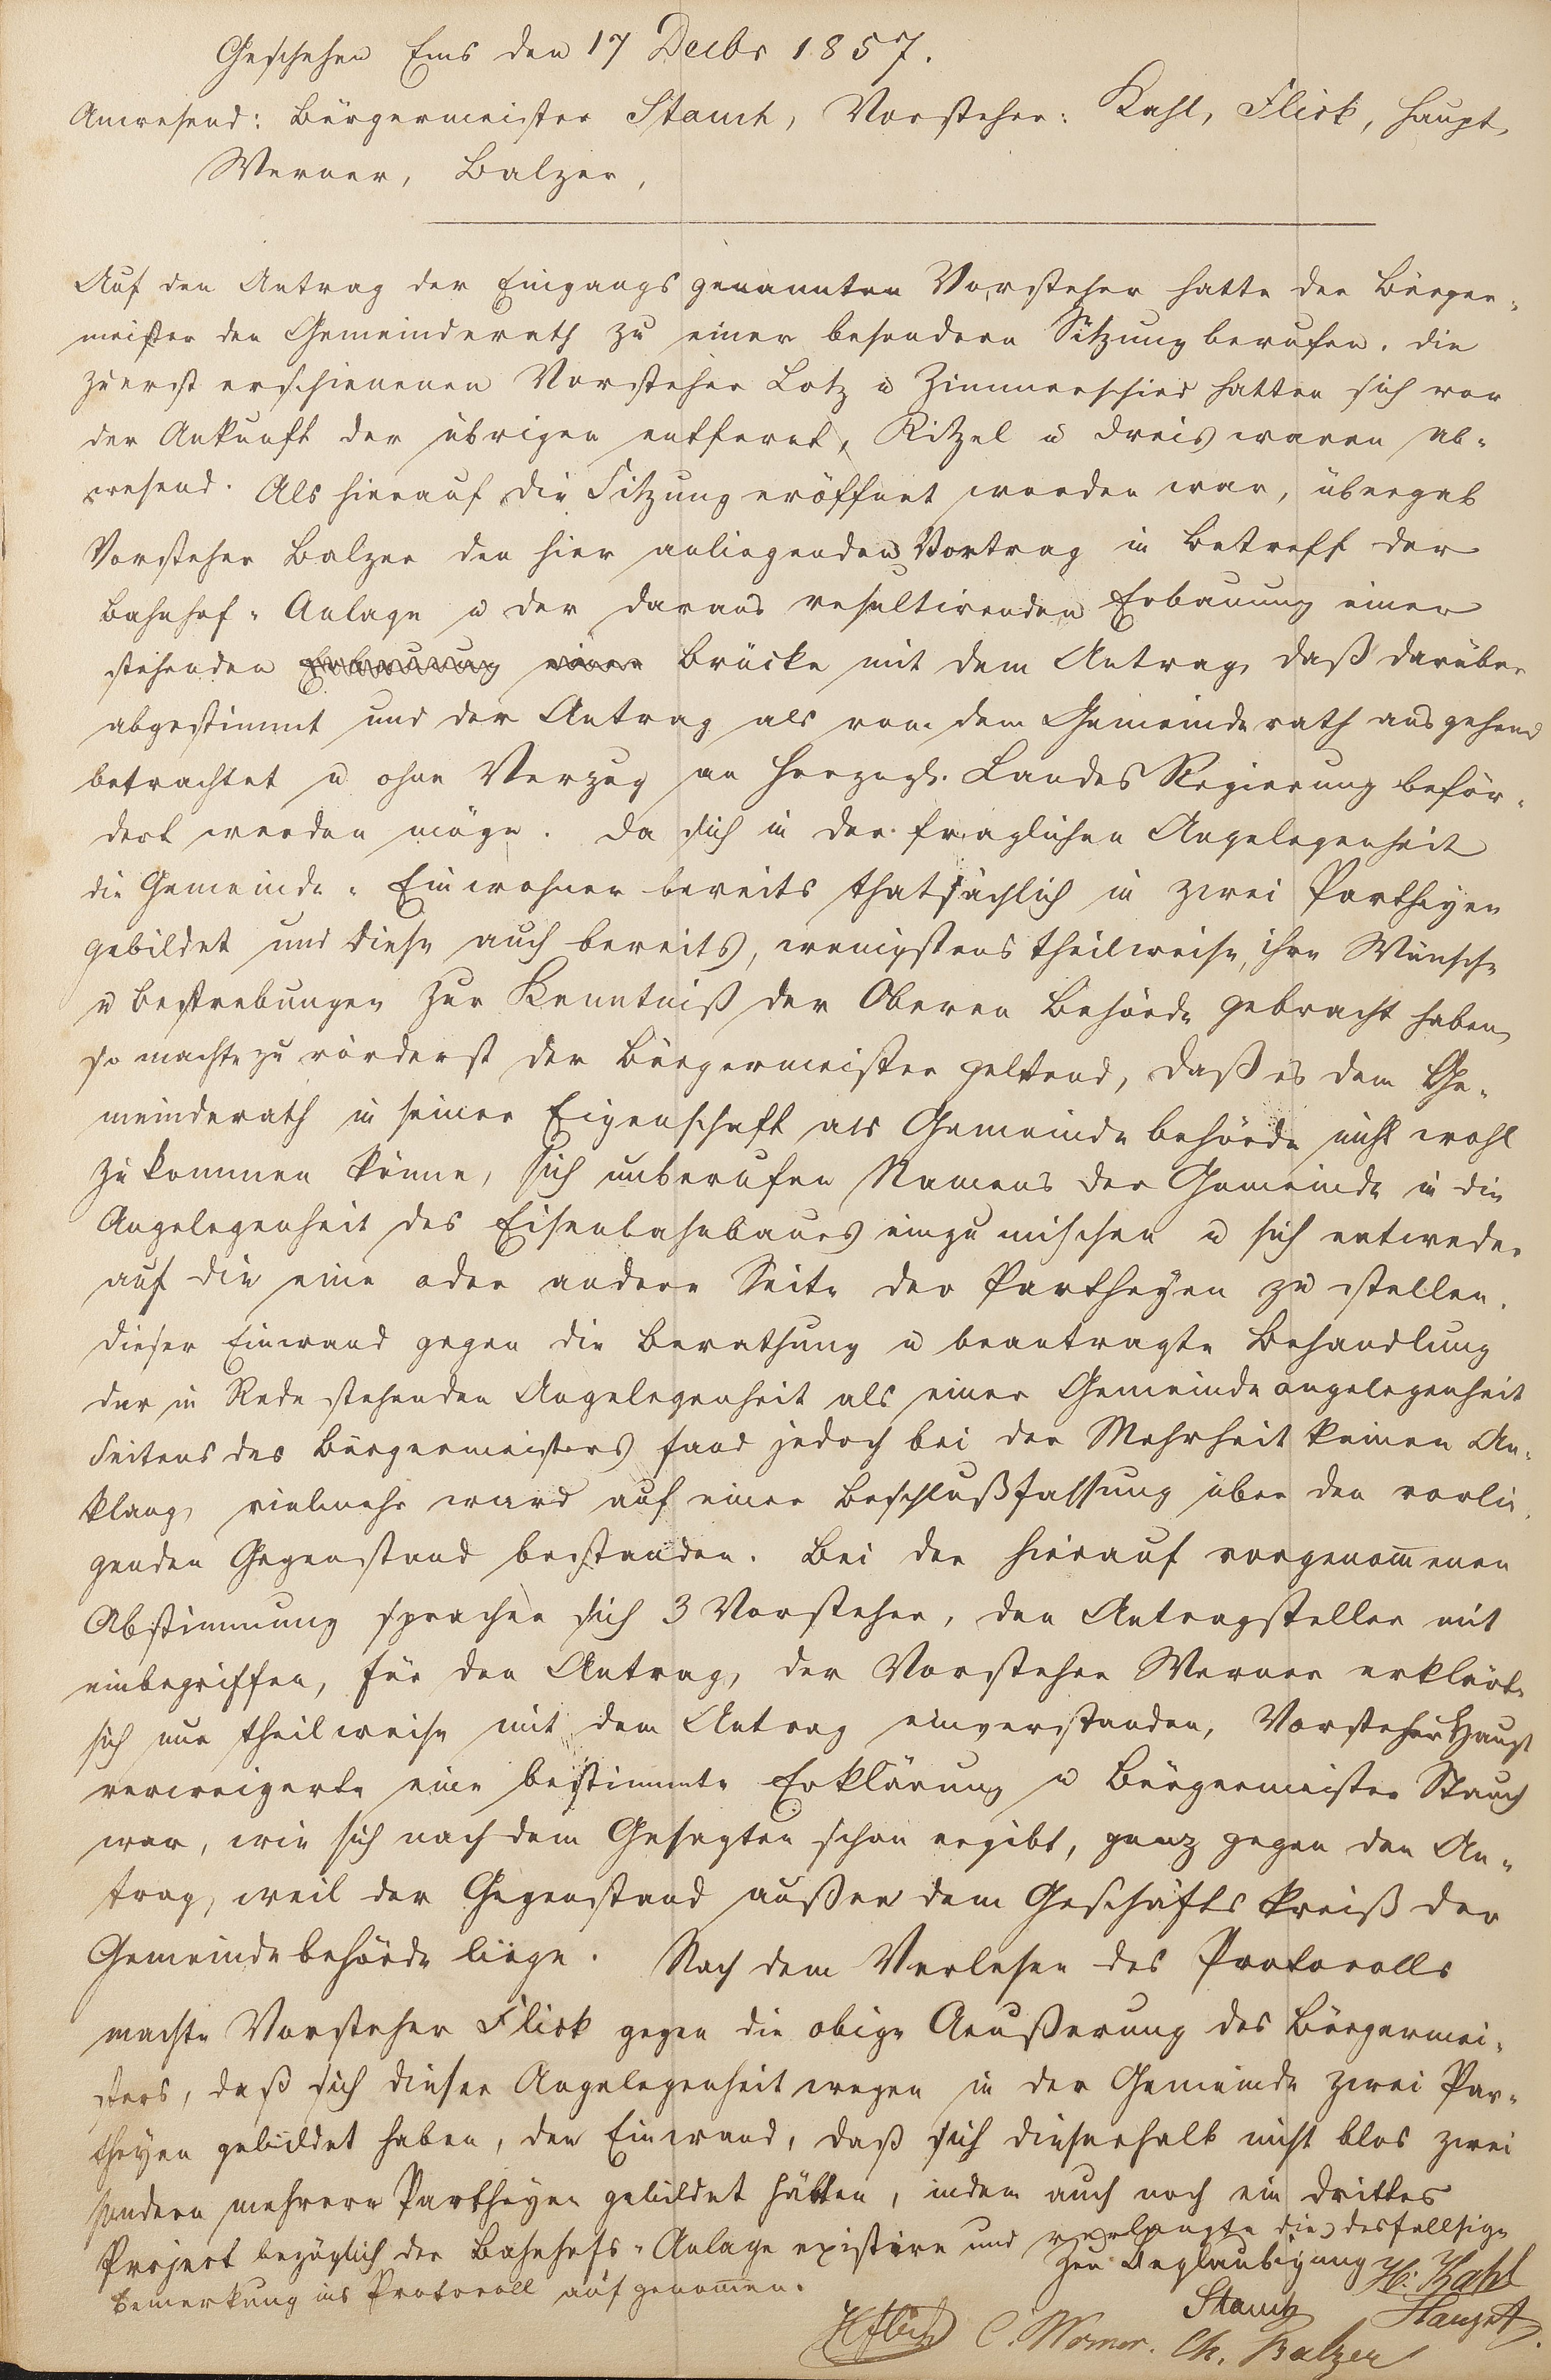 Geschehen Ems den 17 Decbr 1857.
Anwesend: Bürgermeister Stauch, Vorsteher: Kahl, Flick, Haupt,
Werner, Balzer,
Auf den Antrag der Eingangs genannten Vorsteher hatte der Bürger-
meister den Gemeinderath zu einer besondern Sitzung berufen. Die
zuerst erschienenen Vorsteher Lotz u Zimmerschied hatten sich vor
der Ankunft der übrigen entfernt, Ritzel u Dreis waren ab-
wesend. Als hierauf die Sitzung eröffnet worden war, übergab
Vorsteher Balzer den hier anliegenden Vortrag in Betreff der
Bahnhof-Anlage u der daraus resultirenden Erbauung einer
stehenden Erbauung einer Brücke mit dem Antrag, daß darüber
abgestimmt und der Antrag als von dem Gemeinderath ausgehend
betrachtet u ohne Verzug an Herzogl. Landes Regierung beför-
dert werden möge. Da sich in der fraglichen Angelegenheit
die Gemeinde-Einwohner bereits thatsächlich in zwei Partheyen
gebildet und diese auch bereits, wenigstens theilweise, ihre Wünsche
u Bestrebungen zur Kenntniß der Oberen Behörde gebracht haben,
so machte zu vörderst der Bürgermeister geltend, daß es dem Ge-
meinderath in seiner Eigenschaft als Gemeindebehörde nicht wohl
zukommen könne, sich unberufen Namens der Gemeinde in die
Angelegenheit des Eisenbahnbaues einzumischen u sich entweder
auf die eine oder andere Seite der Partheyen zu stellen.
Dieser Einwand gegen die Berathung u beantragte Behandlung
der in Rede stehenden Angelegenheit als einer Gemeindeangelegenheit
Seitens des Bürgermeisters fand jedoch bei der Mehrheit keinen An-
klang, vielmehr ward auf einer Beschlußfassung über den vorlie-
genden Gegenstand bestanden. Bei der hierauf vorgenommenen
Abstimmung sprachen sich 3 Vorsteher, den Antragsteller mit
einbegriffen, für den Antrag, der Vorsteher Werner erklärte
sich nur theilweise mit dem Antrag einverstanden, Vorsteher Haupt
verweigerte eine bestimmte Erklärung u Bürgermeister Stauch
war, wie sich nach dem Gesagten schon ergibt, ganz gegen den An-
trag, weil der Gegenstand außer dem Geschäftskreiß der
Gemeindebehörde liege. Nach dem Verlesen des Protocolls
machte Vorsteher Flick gegen die obige Aeußerung des Bürgermei-
sters, daß sich dieser Angelegenheit wegen in der Gemeinde zwei Par-
theyen gebildet haben, den Einwand, daß sich dieserhalb nicht blos zwei
sondern mehrere Partheyen gebildet hätten, indem auch noch ein drittes
Project bezüglich der Bahnhofs-Anlage existire und verlangte die desfallsige
Bemerkung ins Protocoll aufgenommen.
Zur Beglaubigung H: Kahl
Stauch Haupt.
H Flick C. Werner. Ch. Balzer